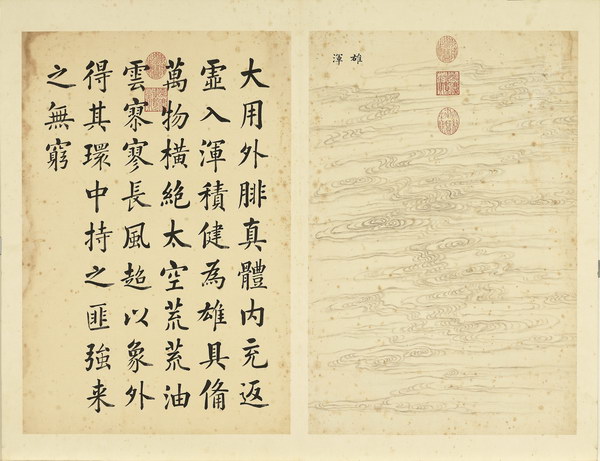 雄渾
大用外腓真體内充返
虛入渾積健為雄具備
萬物橫絶太空荒荒油
雲寥寥長風超以象外
得其環中持之匪強来
之無窮